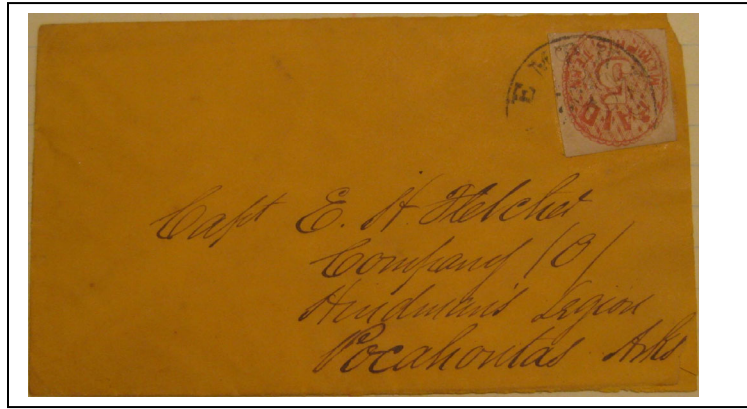 PAID
5
Capt E. H. Fletcher
Company (O)
Hindman's Legion
Pocahontas Arks